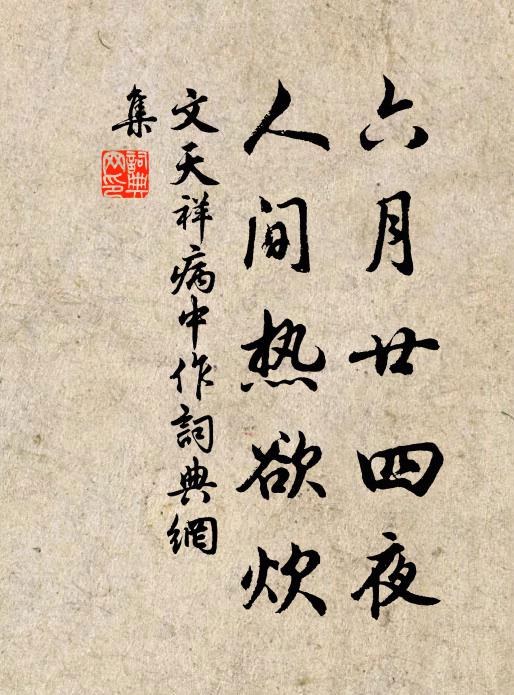 六月廿四夜
人间热欲炊
文天祥病中作詞典網
集
詞典网印